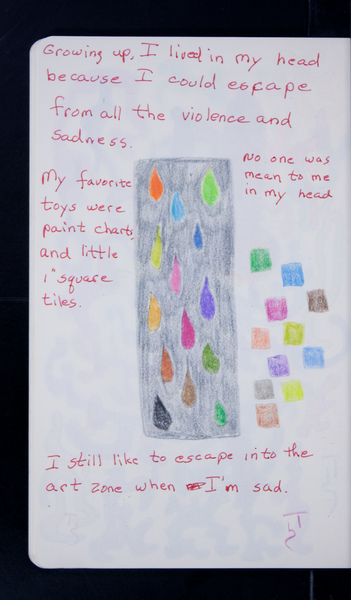 Growing up, I lived in my head
because I could escape
from all the violence and
sadness.
No one was
mean to me
in my head
My favorite
toys were
paint charts,
and little
1" square
tiles.
I still like to escape into the
art zone when I'm sad.